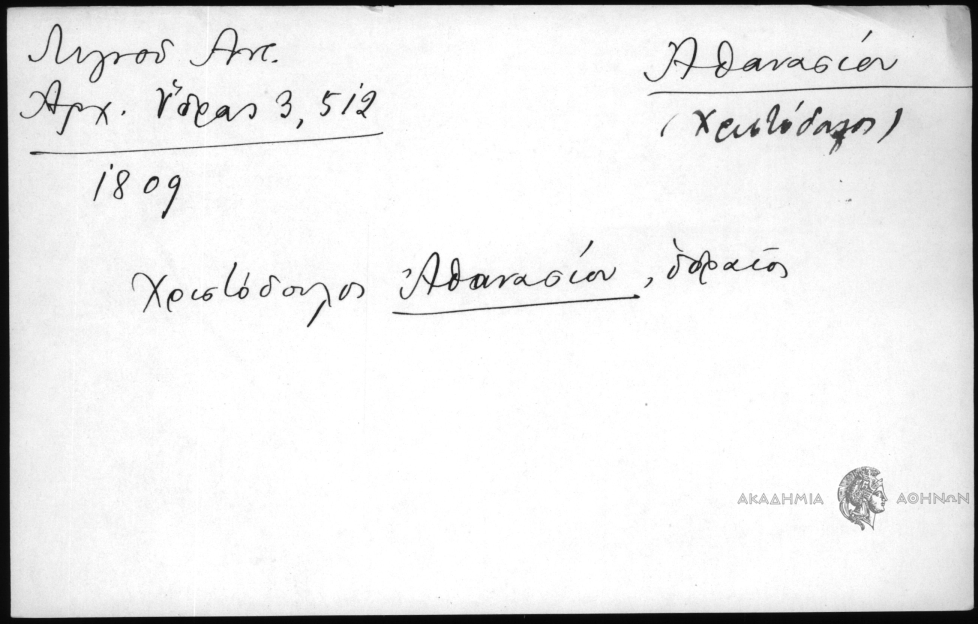 Λιγνοῦ Ἀντ.
Ἀρχ. Ὕδρας 3, 512
1809
Ἀθανασίου
(Χριστόδουλος)
Χριστόδουλος Ἀθανασίου, ὑδραῖος
ΑΚΑΔΗΜΙΑ ΑΘΗΝΩΝ